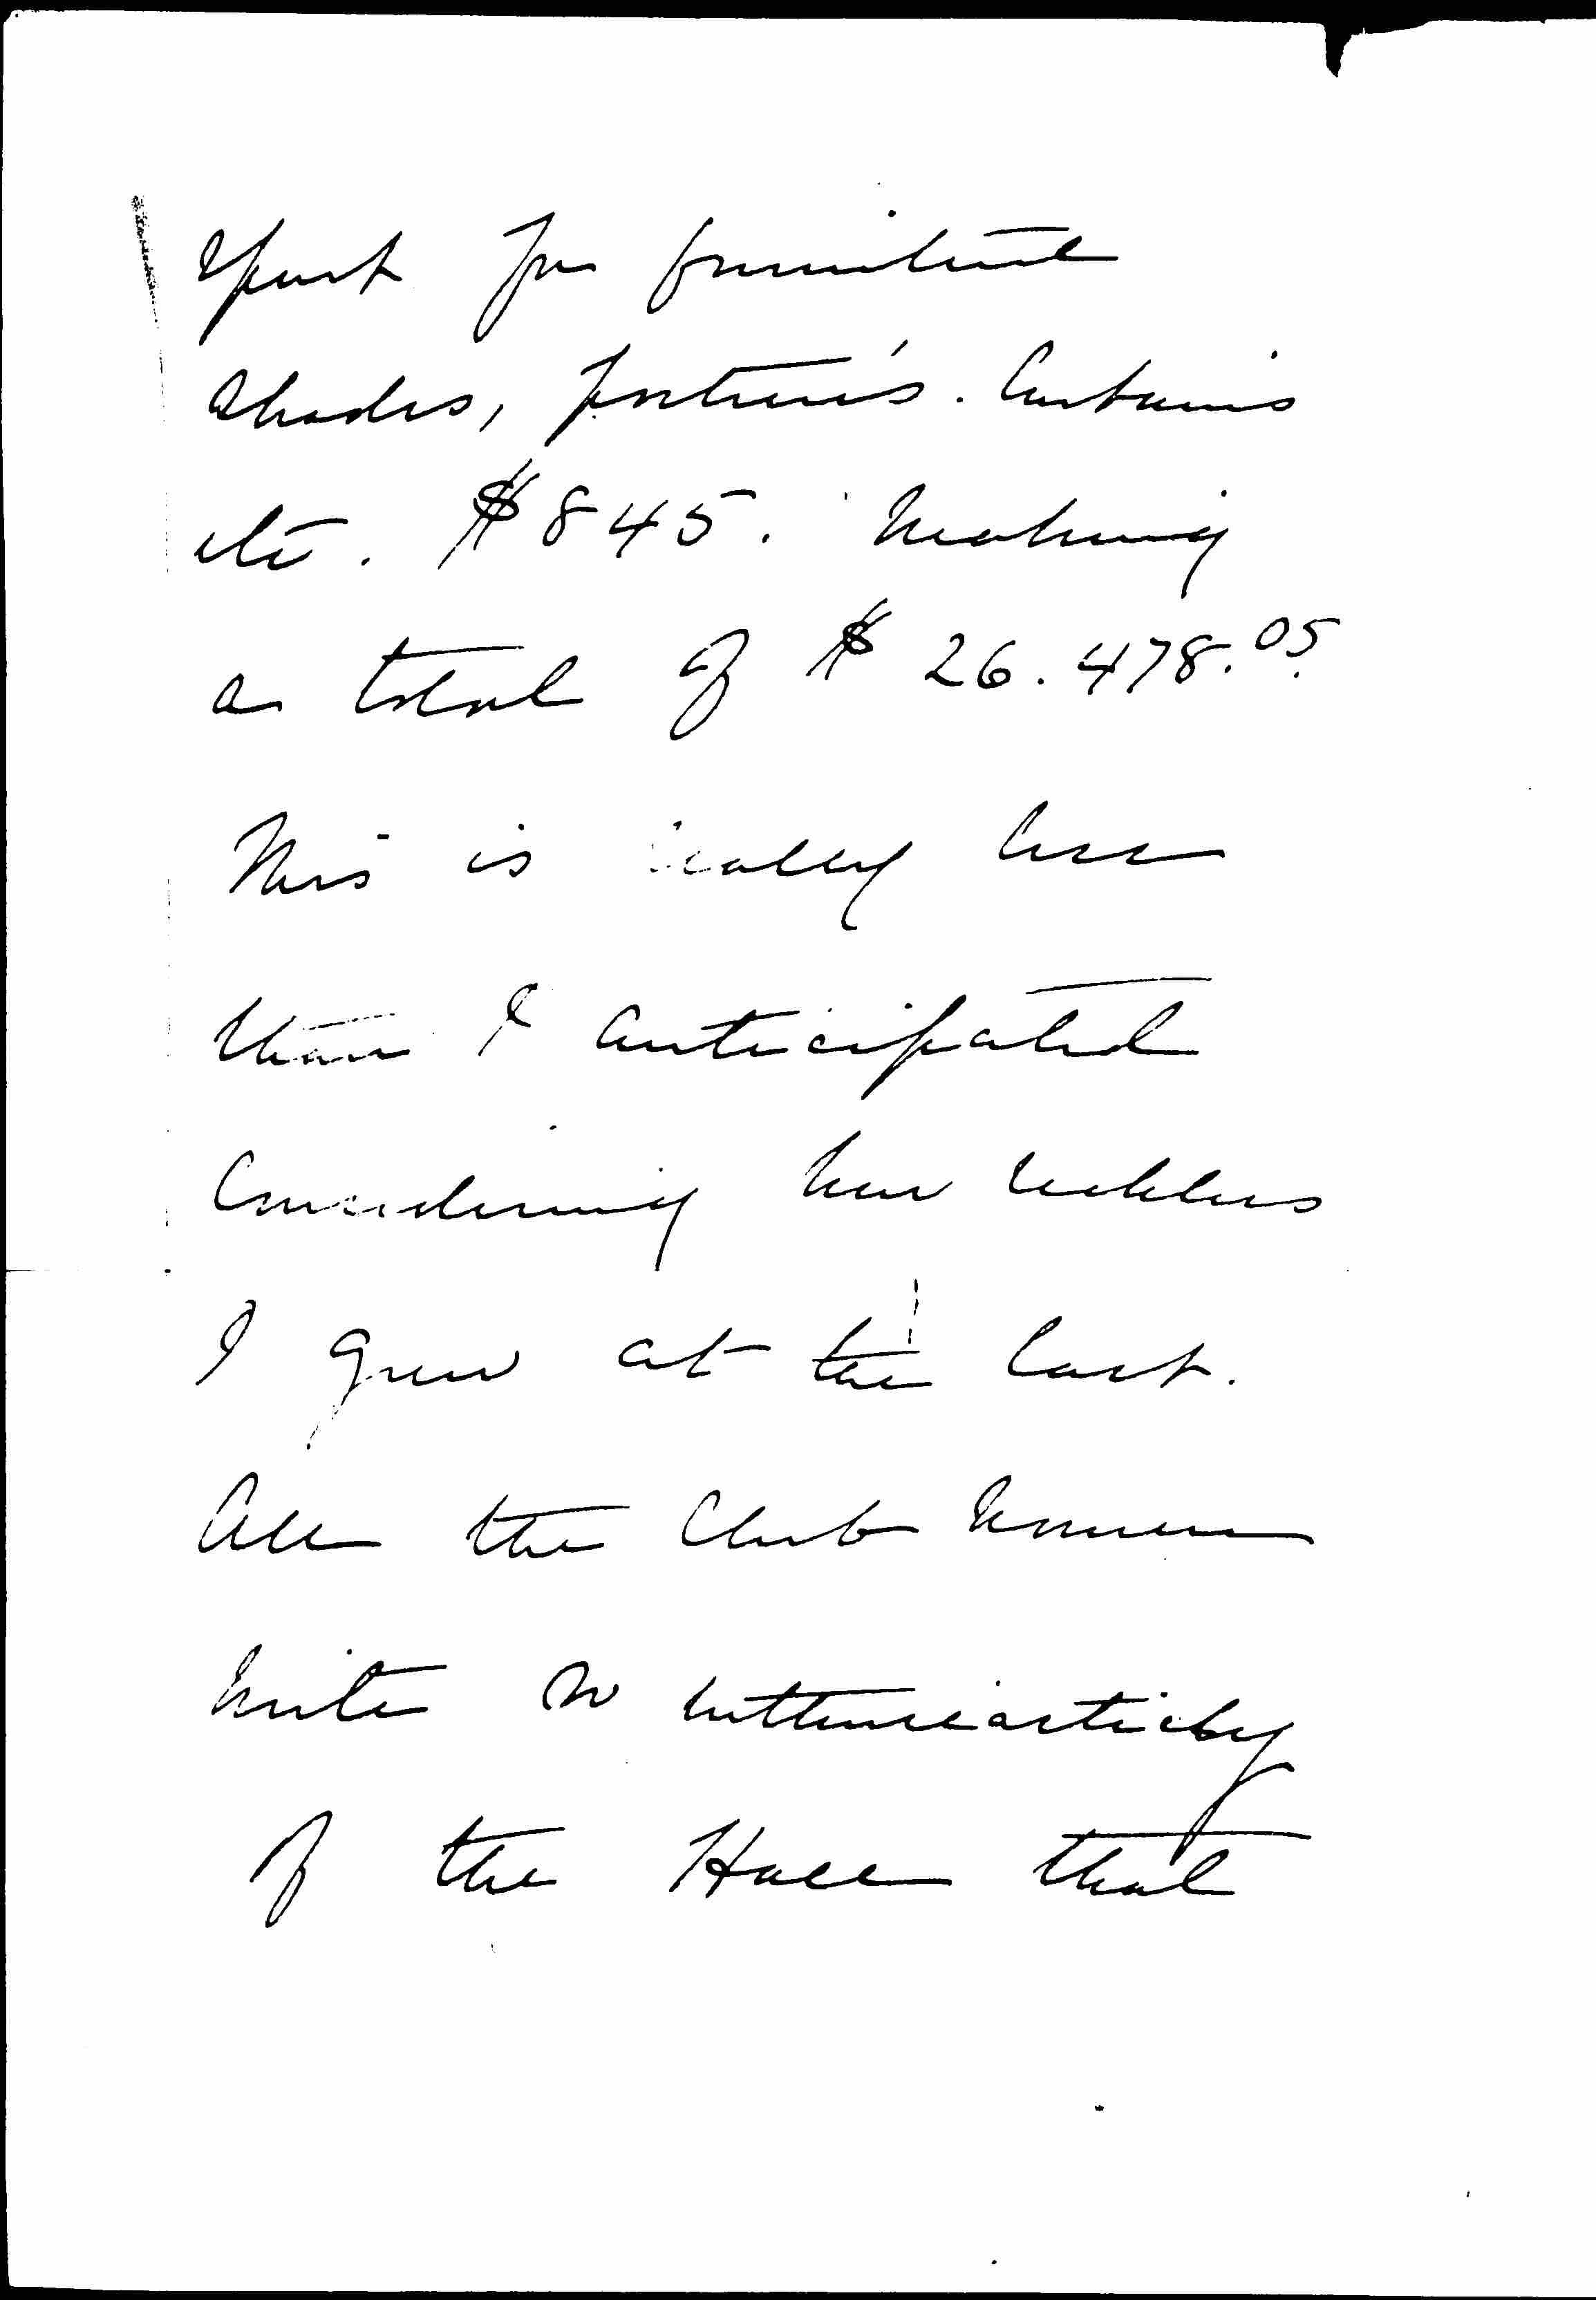 spent for furniture
shades, portieres. Curtains
etc. $845. Making
a total of $ 26.478.05.
This is really less
than I anticipated
Considering how reckless
I grew at the last.
All the Club women
write so enthusiasticly
of the Hall that